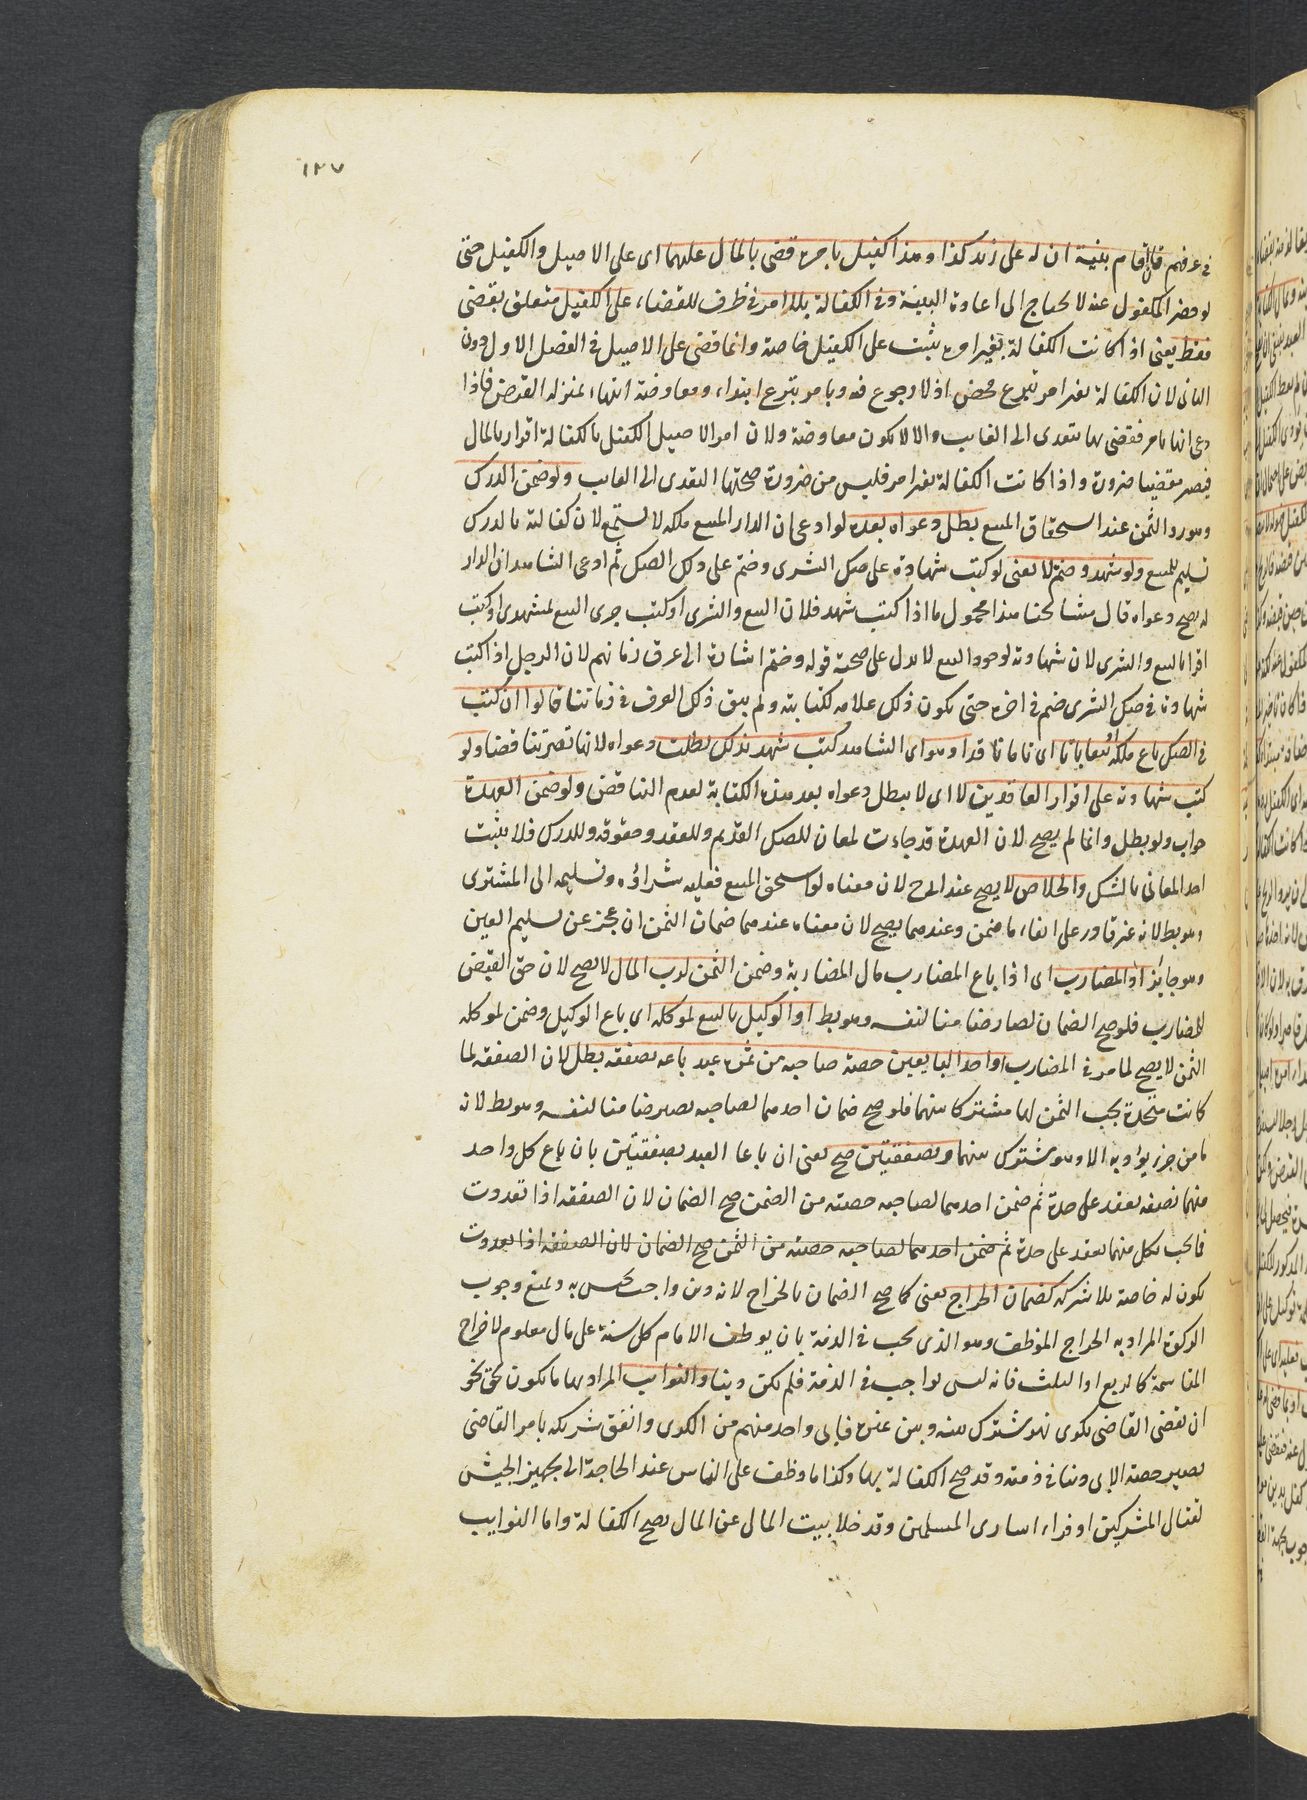 ١٢٧
في عرفهم فان اقام بينة ان له على زيد كذا وهذا كفيل بامره قضى بالمال عليهما اى على الاصيل والكفيل حتى
لو حضر المكفول عنه لا يحتاج الى اعادة البينة وفى الكفالة بلا امر في ظرف للقضاء على الكفيل متعلق بقضى
فقط يعنى اذا كانت الكفالة بغير امره يثبت على الكفيل خاصة وانما قضى على الاصيل في الفصل الاول دون
الثانى لان الكفالة بغير امر تبرع محض اذ لا رجوع فيه وبامر تبرع ابتداء ومعاوضة انتهاء بمنزلة القرض فاذا
دعى انها بامر فقضى بها يتعدى الى الغايب والا لا يكون معاوضة ولان امر الاصيل الكفيل بالكفالة اقرار بالمال
فيصير مقضيا ضرورة واذا كانت الكفالة بغير امر فليس من ضرورة صحتها التعدى الى الغايب ولو ضمن الدرك
وهو رد الثمن عند استحقاق المبيع بطل دعواه بعده لو ادعى ان الدار المبيع ملكه لا يسمع لان كفالته بالدرك
تسليم للمبيع ولو شهد وختم لا يعنى لو كتب شهادة على صك الشرى وختم على ذلك الصك ثم ادعى الشاهد ان الدار
له يصح دعواه قال مشايخنا هذا محمول ما اذا كتب شهد فلان البيع والشرى او كتب جرى البيع بمشهدى او كتب
اقرا بالبيع والشرى لان شهادته لوجود البيع لا يدل على صحة قوله وختم اشارة الى عرف زمانهم لان الرجل اذا كتب
شهادته في صك الشرى ختم في اخره حتى يكون ذلك علامة لكتابته ولم يبق ذلك العرف في زماننا قالوا ان كتب
في الصك باع ملكه او بيعا باتا اى تاما نافذا وهو اى الشاهد كتب شهد بذلك بطلت دعواه لانها تصير تناقضا ولو
كتب شهادته على اقرار العاقدين لا اى لا يبطل دعواه بعد هذه الكتابة لعدم التناقض ولو ضمن العهدة
جواب ولو بطل وانما لم يصح لان العهدة قد جاءت لمعان للصك القديم وللعقد وحقوقه وللدرك فلا يثبت
احد المعانى بالشك والخلاص لا يصح عند ابى ح لان معناه لو استحق المبيع فعليه شراؤه وتسليمه الى المشترى
وهو بط لانه غير قادر على ايفاء ما ضمن وعندهما يصح لان معناه عندهما ضمان الثمن ان عجز عن تسليم العين
وهو جايز او المضارب اى اذا باع المضارب مال المضاربة وضمن الثمن لرب المال لا يصح لان حق القبض
للمضارب فلو صح الضمان لصار ضامنا لنفسه وهو بط او الوكيل بالبيع لموكله اى باع الوكيل وضمن لموكله
الثمن لا يصح لما مر في المضارب او احد البايعين حصة صاحبه من ثمن عبد باعه بصفقة بطل لان الصفقة لما
كانت متحدة يجب الثمن لهما مشتركا بينهما فلو صح ضمان احدهما لصاحبه يصير ضامنا لنفسه وهو بط لانه
ما من جزء يؤديه الا وهو مشترك بينهما وبصفقتين صح يعنى ان باعا العبد بصفقتين بان باع كل واحد
منهما نصفه بعقد على حدة ثم ضمن احدهما لصاحبه حصته من الثمن صح الضمان لان الصفقة اذا تعددت
فما يجب لكل منهما بعقد على حدة ثم ضمن احدهما لصاحبه حصته من الثمن صح الضمان لان الصفقة اذا تعددت
يكون له خاصة بلا شركة كضمان الخراج يعنى كما صح الضمان بالخراج لانه دين واجب يحبس به ويمنع وجوب
الزكوة المراد به الخراج الموظف وهو الذى يجب في الذمة بان يوظف الامام كل سنة على مال معلوم لا خراج
المقاسمة كالربع او الثلث فانه ليس بواجب في الذمة فلم يكن دينا والنوايب المراد بها ما يكون بحق نحو
ان يقضى القاضى بكرى نهر مشترك بينه وبين غيره فابى واحد منهم من الكرى وانفق شريكه بامر القاضى
يصير حصة الابى دينا في ذمته وقد صح الكفالة بها وكذا ما وظف على الناس عند الحاجة الى تجهيز الجيش
لقتال المشركين او فداء اسارى المسلمين وقد خلا بيت المال عن المال يصح الكفالة واما النوايب